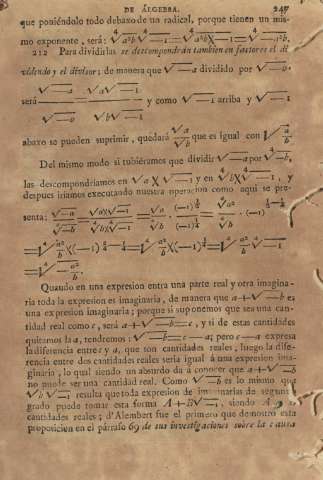 DE ÁLGEBRA. 247
que poniéndolo todo debaxo de un radical, porque tienen un mis-
mo exponente, será: ⁴√a²b ⁴√−1 = ⁴√a²b × −1 = ⁴√−a²b.
212 Para dividirlas se descompondrán tambien en factores el di-
videndo y el divisor; de manera que √−a dividido por √−b,
será √−a / √−b = √a √−1 / √b √−1 y como √−1 arriba y √−1
abaxo se pueden suprimir, quedará √a / √b que es igual con √a/b
Del mismo modo si tubiéramos que dividir √−a por ⁴√−b,
las descompondriamos en √a × √−1 y en ⁴√b × ⁴√−1, y
despues iriamos executando nuestra operacion como aquí se pre-
senta:
Quando en una expresion entra una parte real y otra imagina-
ria toda la expresion es imaginaria, de manera que a+√−b es
una expresion imaginaria; porque si suponemos que sea una can-
tidad real como c, será a+√−b=c, y si de estas cantidades
quitamos la a, tendremos: √−b=c−a; pero c−a expresa
la diferencia entre c y a, que son cantidades reales, luego la dife-
rencia entre dos cantidades reales seria igual á una expresion ima-
ginaria, lo qual siendo un absurdo da á conocer que a+√−b
no puede ser una cantidad real. Como √−b es lo mismo que
√b √−1, resulta que toda expresion de imaginarias de segundo
grado puede tomar esta forma A+B√−1, siendo A
cantidades reales; d'Alembert fue el primero que demostró esta
proposicion en el párrafo 69 de sus investigaciones sobre la causa